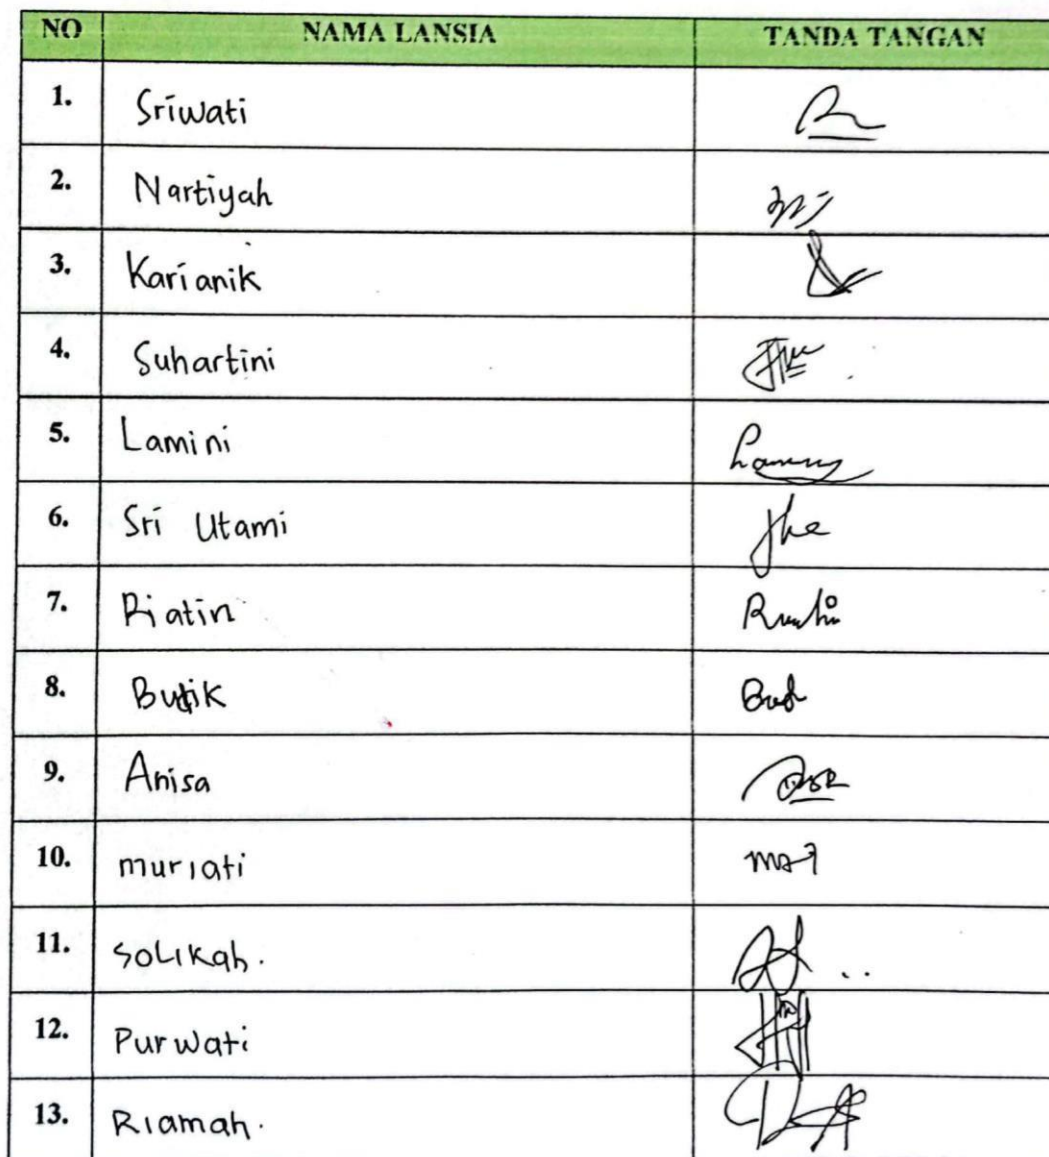 NO NAMA LANSIA TANDA TANGAN
1. Sriwati
2. Nartiyah
3. Karianik
4. Suhartini
5. Lamini
6. Sri Utami
7. Riatin
8. Butik
9. Anisa
10. muriati
11. SOLIKah.
12. Purwati
13. Riamah.